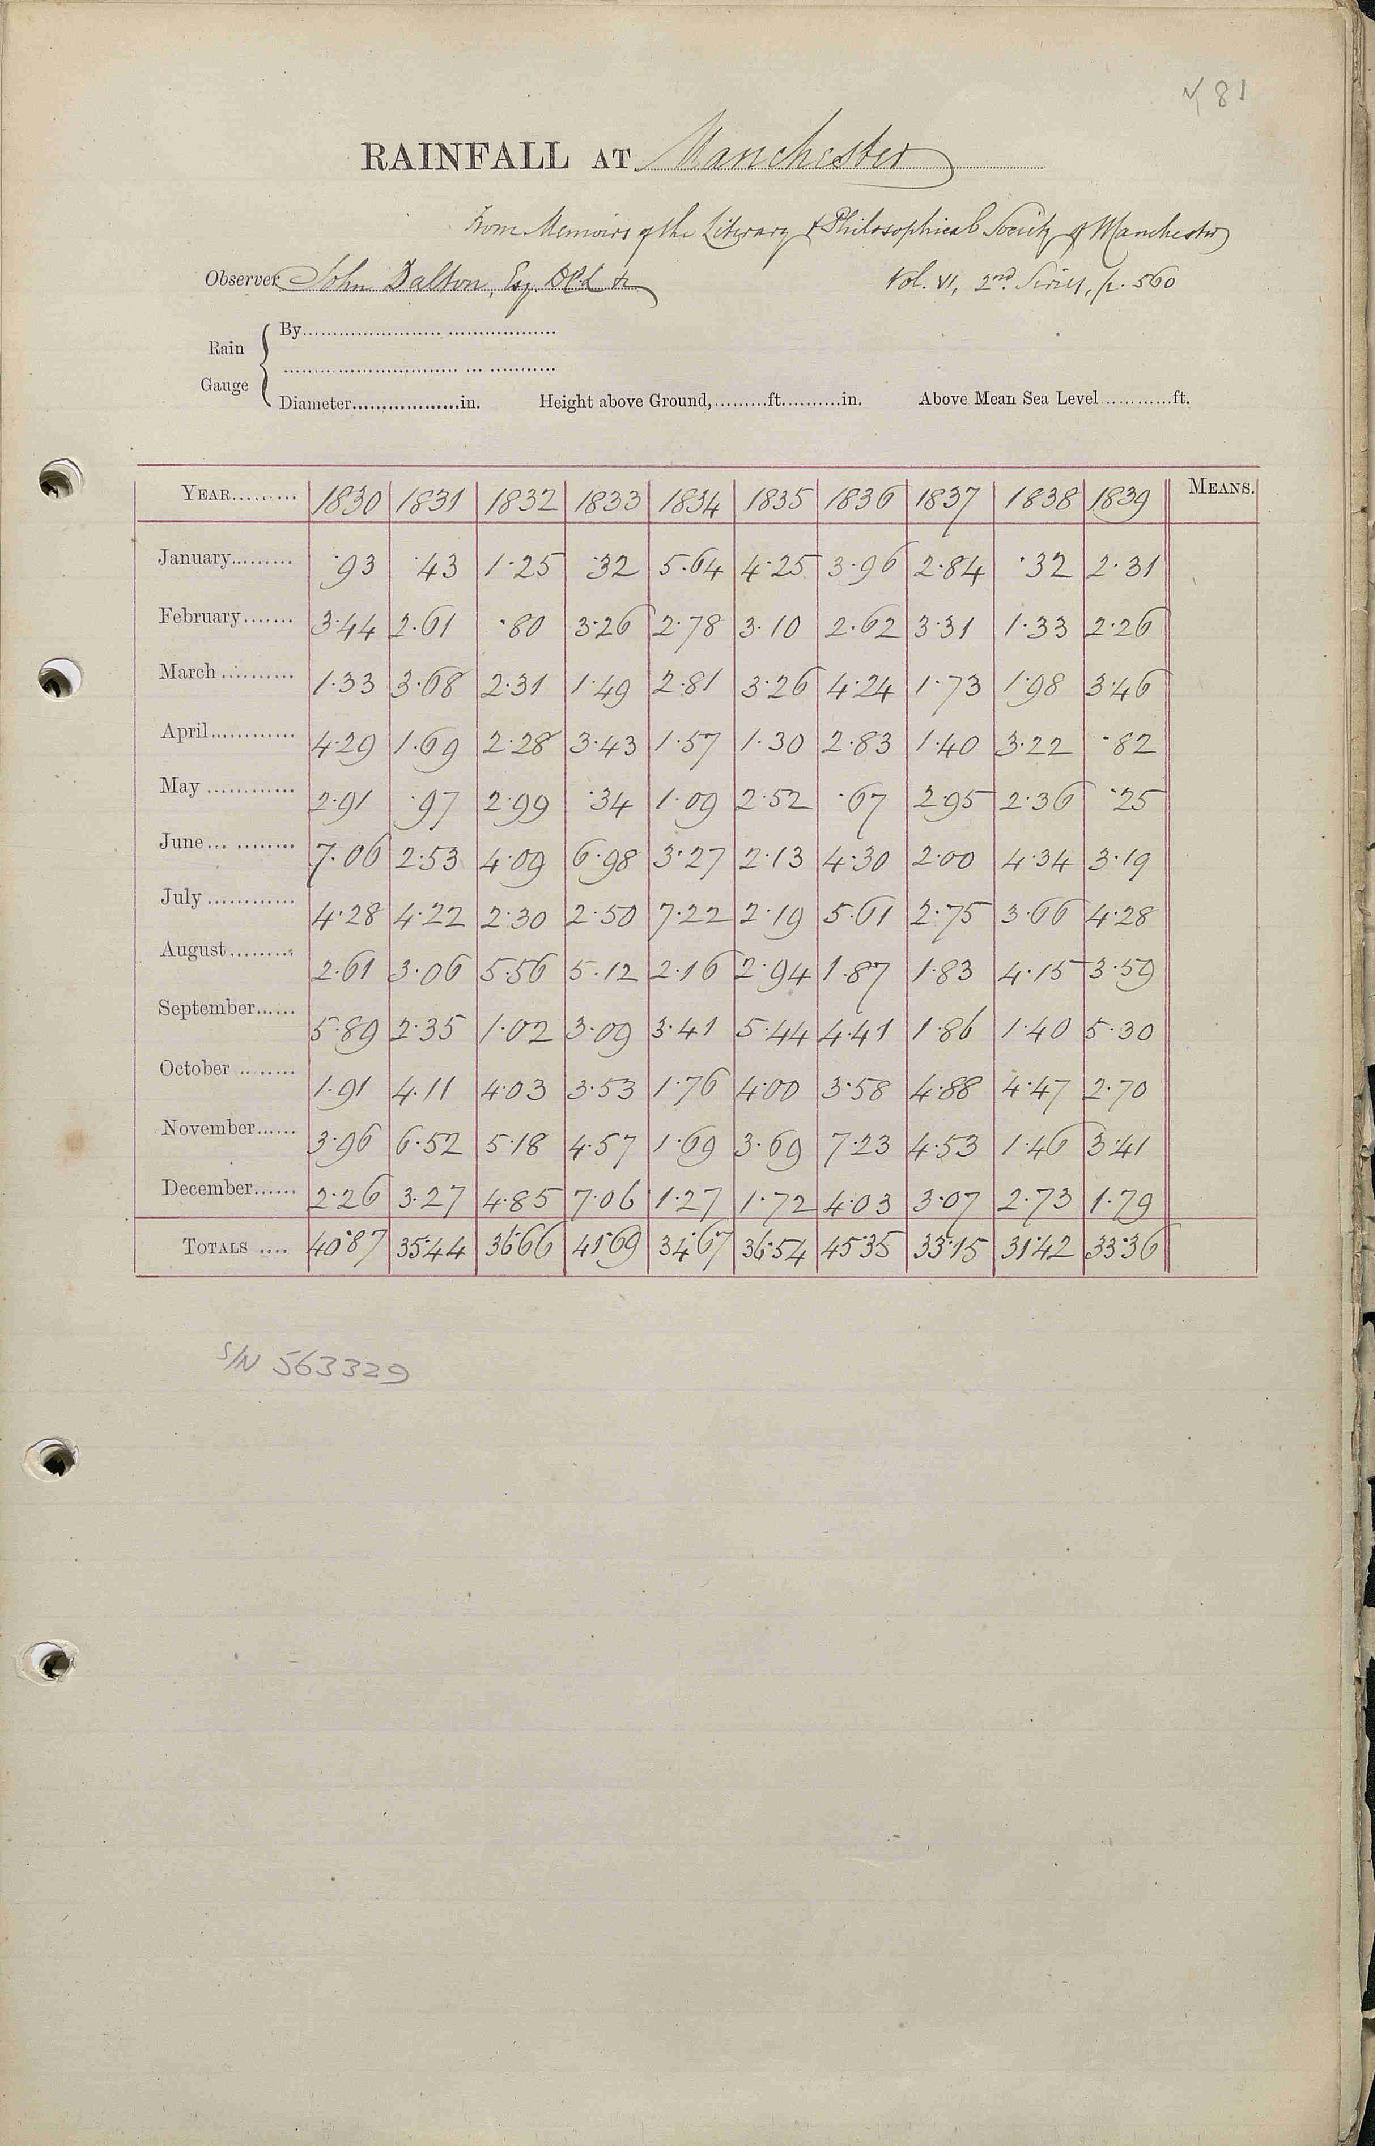 √ 81
RAINFALL AT Manchester
From Memoirs of the Literary & Philosophical Society of Manchester
Observer John Dalton, Esq. D.C.L &c Vol. VI, 2nd. Series, p. 560
Rain Gauge { By
Diameter in. Height above Ground, ft. in. Above Mean Sea Level ft.
YEAR 1830 1831 1832 1833 1834 1835 1836 1837 1838 1839 MEANS.
January ·93 ·43 1·25 ·32 5·64 4·25 3·96 2·84 ·32 2·31
February 3·44 2·61 ·80 3·26 2·78 3·10 2·62 3·31 1·33 2·26
March 1·33 3·68 2·31 1·49 2·81 3·26 4·24 1·73 1·98 3·46
April 4·29 1·69 2·28 3·43 1·57 1·30 2·83 1·40 3·22 ·82
May 2·91 ·97 2·99 ·34 1·09 2·52 ·67 2·95 2·36 ·25
June 7·06 2·53 4·09 6·98 3·27 2·13 4·30 2·00 4·34 3·19
July 4·28 4·22 2·30 2·50 7·22 2·19 5·61 2·75 3·66 4·28
August 2·61 3·06 5·56 5·12 2·16 2·94 1·87 1·83 4·15 3·59
September 5·89 2·35 1·02 3·09 3·41 5·44 4·41 1·86 1·40 5·30
October 1·91 4·11 4·03 3·53 1·76 4·00 3·58 4·88 4·47 2·70
November 3·96 6·52 5·18 4·57 1·69 3·69 7·23 4·53 1·46 3·41
December 2·26 3·27 4·85 7·06 1·27 1·72 4·03 3·07 2·73 1·79
TOTALS 40·87 35·44 36·66 41·69 34·67 36·54 45·35 33·15 31·42 33·36
S/N 563329